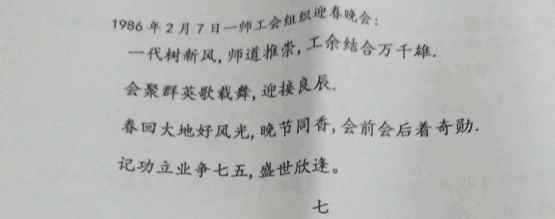 1986年2月7日一师工会组织迎春晚会:
一代树新风,师道推崇,工余结合万千雄.
会聚群英歌载舞,迎接良辰.
春回大地好风光,晚节同香,会前会后着奇勋.
记功立业争七五,盛世欣逢。
七